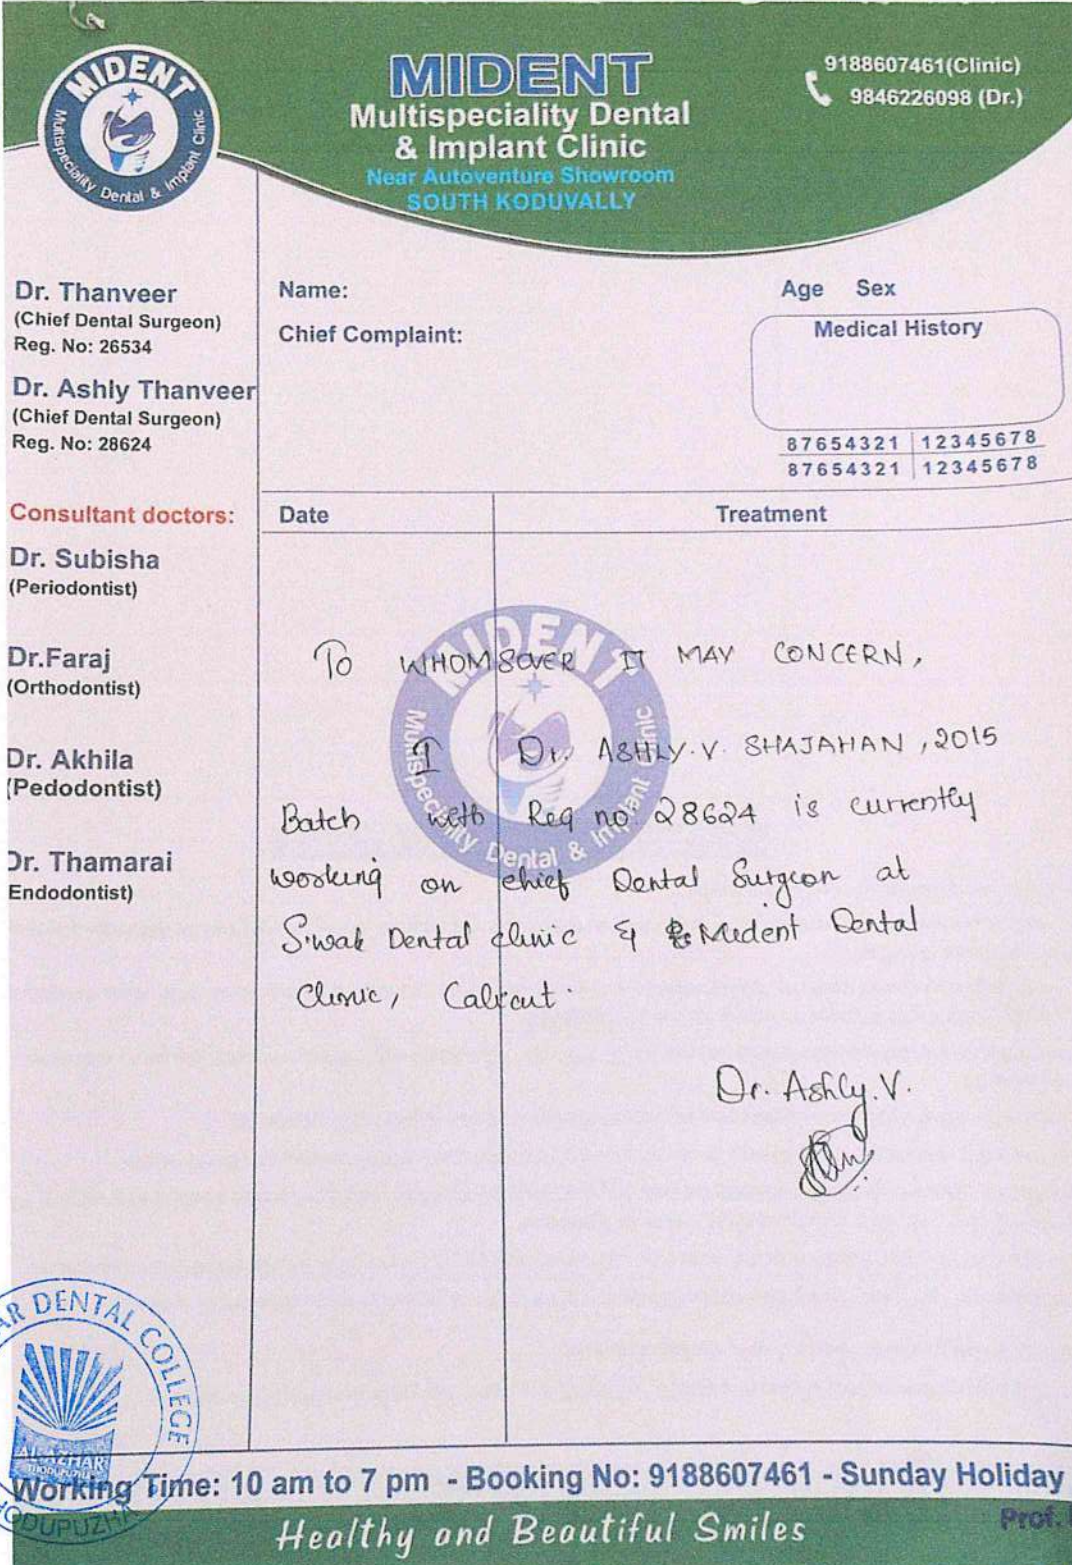 MIDENT
Multispeciality Dental & Implant Clinic
MIDENT
Multispeciality Dental
& Implant Clinic
Near Autoventure Showroom
SOUTH KODUVALLY
9188607461(Clinic)
9846226098 (Dr.)
Dr. Thanveer
(Chief Dental Surgeon)
Reg. No: 26534
Dr. Ashly Thanveer
(Chief Dental Surgeon)
Reg. No: 28624
Consultant doctors:
Dr. Subisha
(Periodontist)
Dr.Faraj
(Orthodontist)
Dr. Akhila
(Pedodontist)
Dr. Thamarai
Endodontist)
Name:
Age Sex
Chief Complaint:
Medical History
87654321 12345678
87654321 12345678
Date Treatment
MIDENT
Multispeciality Dental & Implant Clinic
To WHOMSOVER IT MAY CONCERN,
I Dr. ASHLY.V. SHAJAHAN, 2015
Batch with Reg no: 28624 is currently
working on chief Dental Surgeon at
Siwak Dental clinic & Medent Dental
Clinic, Calicut.
Dr. Ashly.V.
AR DENTAL COLLEGE
AL-AZHAR
THODUPUZHA
HODUPUZHA
Working Time: 10 am to 7 pm - Booking No: 9188607461 - Sunday Holiday
Healthy and Beautiful Smiles
Prof.